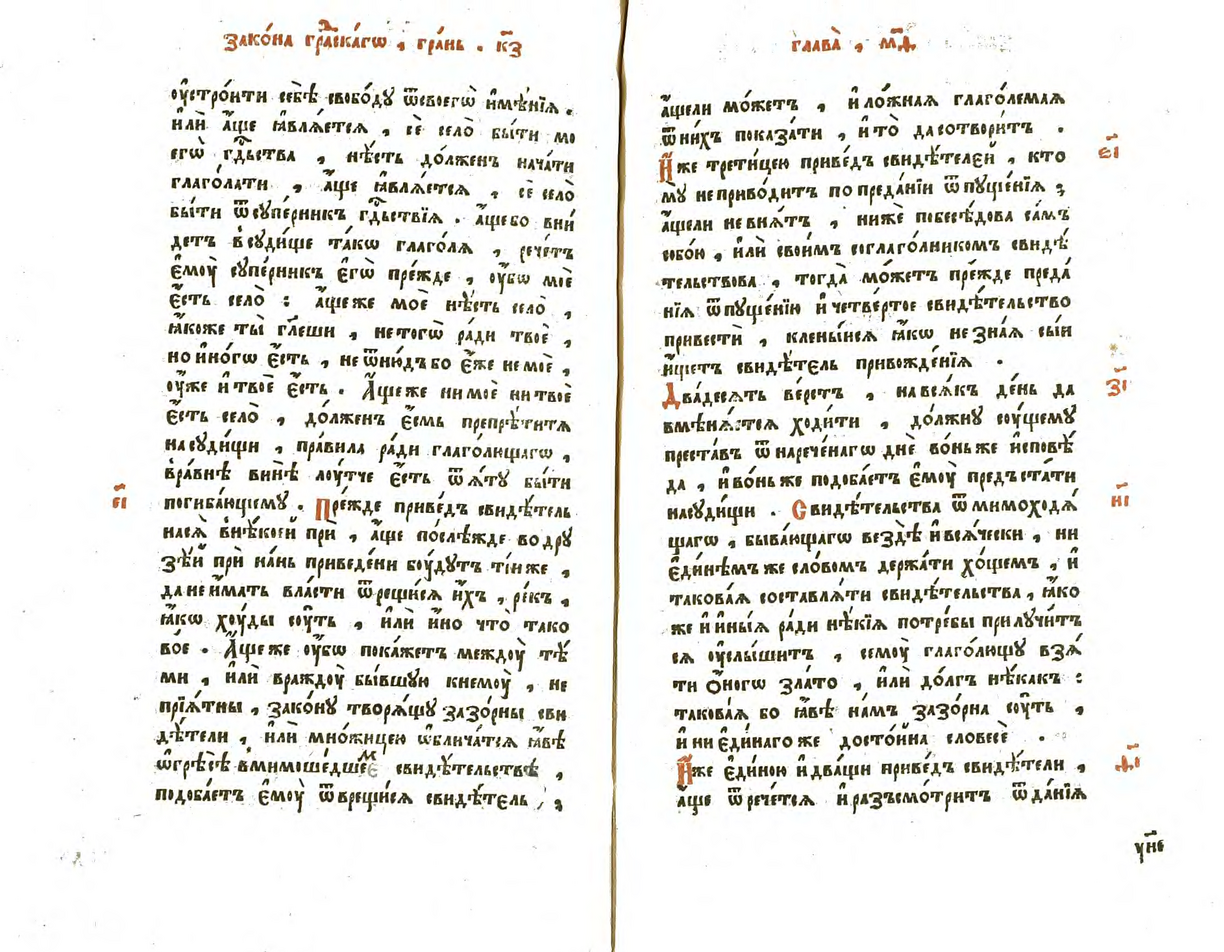 Зако́на гра́дскагѡ , гра́нь . к҃з
оу҆стро́ити себѣ̀ свобо́ду ѿсвоегѡ̀ и҆мѣ́нїѧ .
и҆лѝ а҆́ще ꙗ҆влѧ́етсѧ , сѐ село̀ бы́ти мо
егѡ̀ гдⷭ҇ьства , нѣ́сть до́лженъ нача́ти
глаго́лати , а҆́ще ꙗ҆влѧ́етсѧ , сѐ село̀
бы́ти ѿсупе́рникъ гдⷭ҇ьствїѧ . а҆́щебо вни́
детъ всуди́ще та́кѡ глаго́лѧ , рече́тъ
є҆моу̀ супе́рникъ є҆гѡ̀ пре́жде , оу҆́бѡ моѐ
є҆́сть село̀ : а҆́щеже моѐ нѣ́сть село̀ ,
ꙗ҆́коже ты̀ гл҃еши , нетогѡ̀ ра́ди твоѐ ,
но и҆но́гѡ є҆́сть , не ѿню́дъ бо є҆́же не моѐ ,
оу҆́же и҆ твоѐ є҆́сть . А҆́щеже ни моѐ ни твоѐ
є҆́сть село̀ , до́лженъ є҆́смь препрѣ́титѧ
на суди́щи , пра́вила ра́ди глаго́лющагѡ ,
вра́внѣ винѣ̀ лоу́тче є҆́сть ѿѧ́ту бы́ти
погиба́ющему . Пре́жде приве́дъ свидѣ́тель
е҃і
насѧ̀ внѣ́коей прѝ , а҆́ще послѣ́жде во дру
зѣ́й прѝ на́нь приведе́ни боу́дутъ ті́иже ,
да не и҆́мать вла́сти ѿрещи́сѧ и҆́хъ , ре́къ ,
ꙗ҆́кѡ хоу́ды соу́ть , и҆лѝ и҆́но что̀ тако
во́е . А҆́щеже оу҆́бѡ пока́жетъ междоу̀ тѣ́
ми , и҆лѝ враждоу̀ бы́вшую кнемоу̀ , не
прїѧ́тны , зако́ну творѧ́щу зазо́рны сви
дѣ́тели , и҆лѝ мно́жицею ѡ҆блича́тсѧ ꙗ҆́вѣ
ѡ҆грѣ́сѣ вмимоше́дшемъ свидѣ́тельствѣ ,
подоба́етъ є҆моу̀ ѿврещи́сѧ свидѣ́тель ,
глава̀ , м҃д
а҆́щели мо́жетъ , и҆ ло́жнаѧ глаго́лемаѧ
ѿни́хъ показа́ти , и҆ то̀ да сотвори́тъ .
И҆́же трети́цею приве́дъ свидѣ́телей , кто
е҃і
му̀ не приво́дитъ по преда́нїи ѿпуще́нїѧ ;
а҆́щели не внѧ́тъ , нижѐ побесѣ́дова са́мъ
собо́ю , и҆лѝ свои́мъ соглаго́лникомъ свидѣ́
тельствова , тогда̀ мо́жетъ пре́жде преда́
нїѧ ѿпуще́нїю и҆ четве́ртое свидѣ́тельство
привестѝ , клены́йсѧ ꙗ҆́кѡ не зна́ѧ сы́и
и҆́щетъ свидѣ́тель привожде́нїѧ .
Два́десѧть ве́рстъ , на всѧ́къ де́нь да
з҃і
вмѣнѧ́ютсѧ ходи́ти , до́лжну соу́щему
преста́въ ѿнарече́нагѡ днѐ во́ньже и҆сповѣ́
да , и҆ во́ньже подоба́етъ є҆моу̀ предъста́ти
на суди́щи . Свидѣ́тельства ѿмимоходѧ́
и҃і
щагѡ , быва́ющагѡ вездѣ̀ и҆ всѧ́чески , ни
є҆ди́нѣмъ же сло́вомъ держа́ти хо́щемъ , и҆
такова́ѧ составлѧ́ти свидѣ́тельства , ꙗ҆́ко
же и҆ и҆ны́ѧ ра́ди нѣ́кїѧ потре́бы прилучи́т
сѧ оу҆слы́шитъ , семоу̀ глаго́лющу взѧ́
ти о҆́ногѡ зла́то , и҆лѝ до́лгъ нѣ́какъ :
такова́ѧ бо ꙗ҆́вѣ на́мъ зазо́рна соу́ть ,
и҆ ни є҆ди́наго же досто́йна словесѐ .
И҆́же є҆ди́ною и҆ два́щи приве́дъ свидѣ́тели ,
ѳ҃і
а҆́ще ѿрече́тсѧ и҆ разъсмо́тритъ ѿда́нїѧ
у҃не